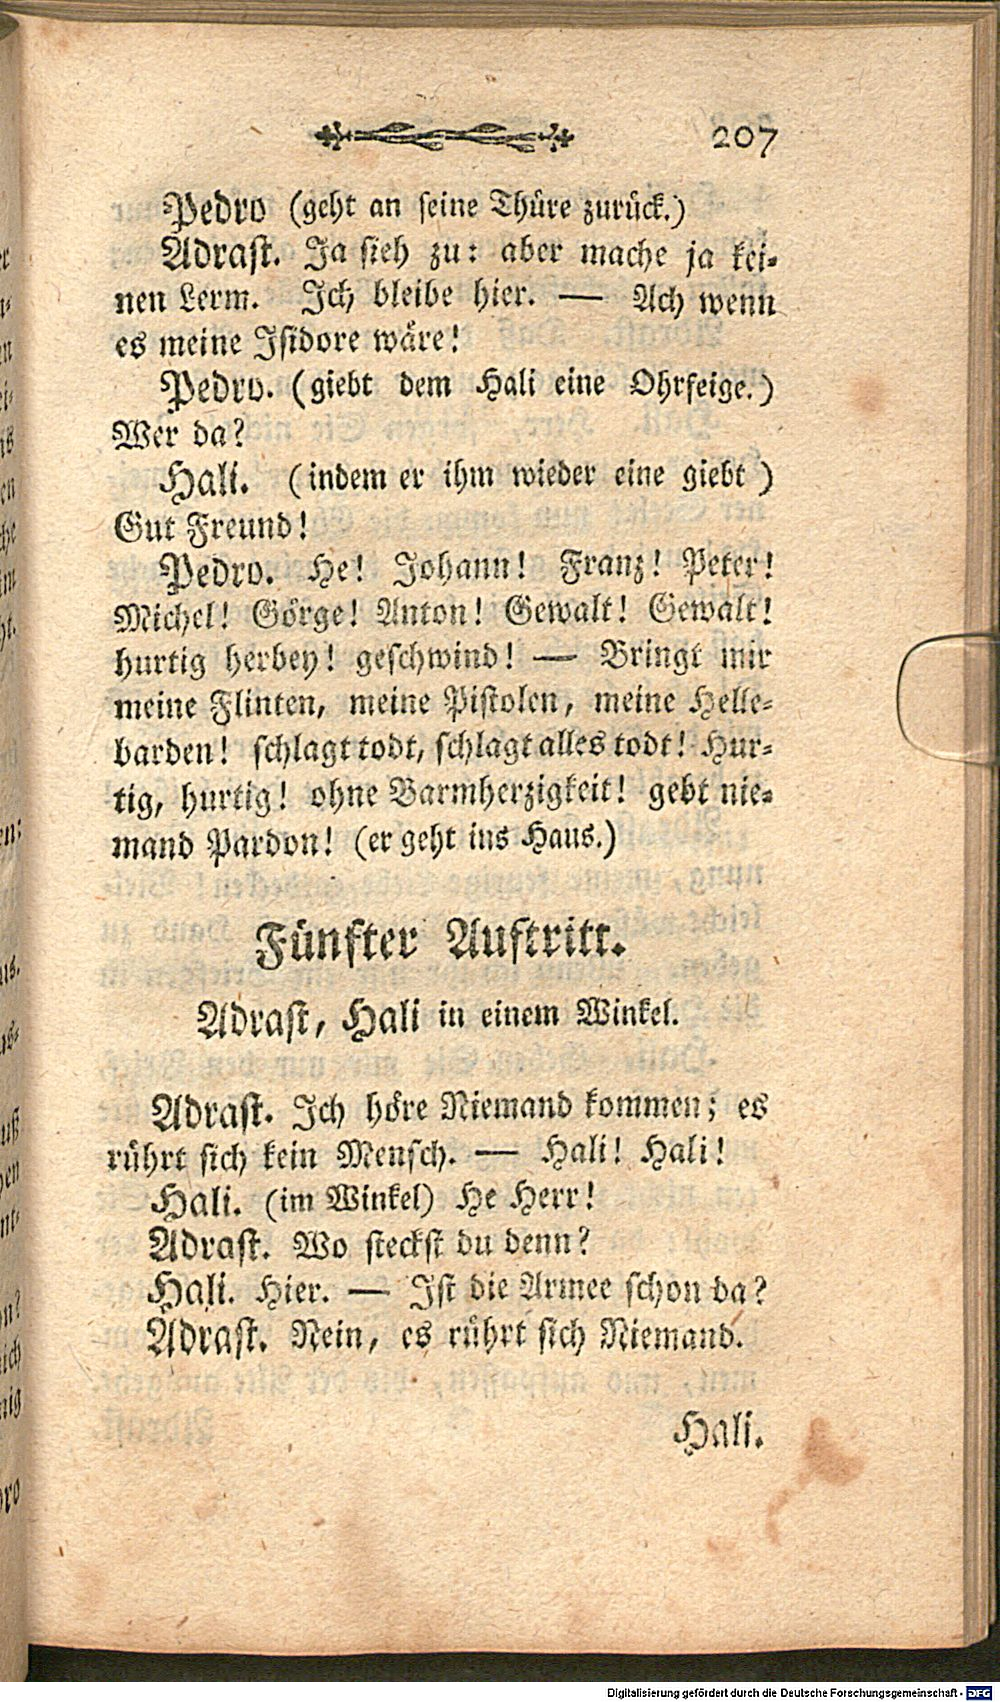 207
Pedro (geht an seine Thüre zurück.)
Adrast. Ja sieh zu: aber mache ja kei-
nen Lerm. Ich bleibe hier. — Ach wenn
es meine Isidore wäre!
Pedro. (giebt dem Hali eine Ohrfeige.)
Wer da?
Hali. (indem er ihm wieder eine giebt)
Gut Freund!
Pedro. He! Johann! Franz! Peter!
Michel! Görge! Anton! Gewalt! Gewalt!
hurtig herbey! geschwind! — Bringt mir
meine Flinten, meine Pistolen, meine Helle-
barden! schlagt todt, schlagt alles todt! Hur-
tig, hurtig! ohne Barmherzigkeit! gebt nie-
mand Pardon! (er geht ins Haus.)
Fünfter Auftritt.
Adrast, Hali in einem Winkel.
Adrast. Ich höre Niemand kommen; es
rührt sich kein Mensch. — Hali! Hali!
Hali. (im Winkel) He Herr!
Adrast. Wo steckst du denn?
Hali. Hier. — Ist die Armee schon da?
Adrast. Nein, es rührt sich Niemand.
Hali.
Digitalisierung gefördert durch die Deutsche Forschungsgemeinschaft - DFG